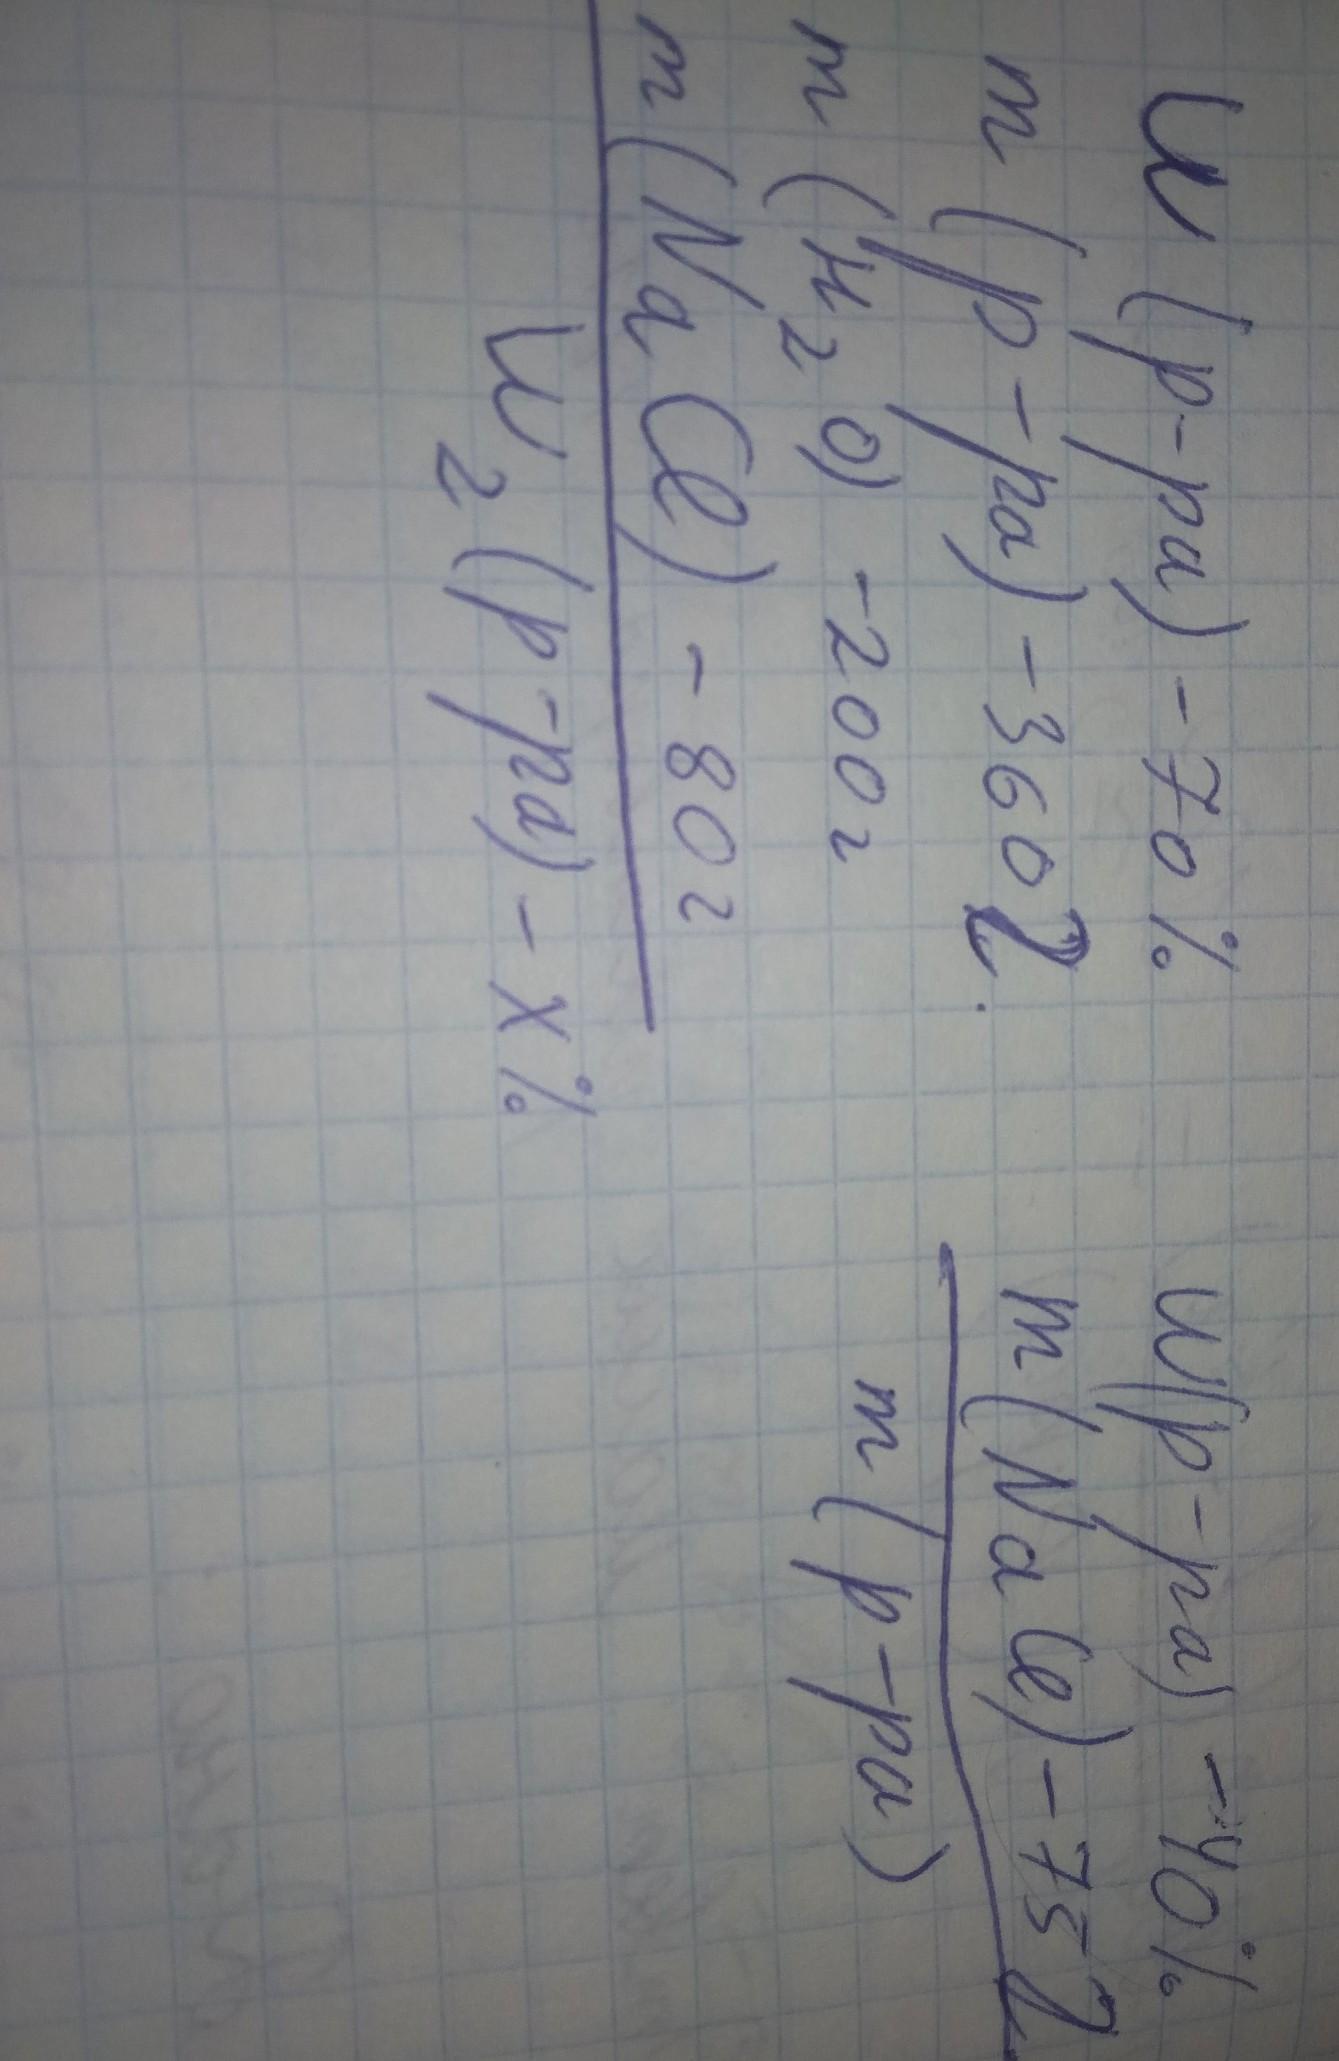 W (р-ра) - 70%
m (р-ра) - 360 г.
m (H2O) - 200 г
m (NaCl) - 80 г
W2 (р-ра) - X%
W(р-ра) - 40%
m (NaCl) - 75 г
m (р-ра)